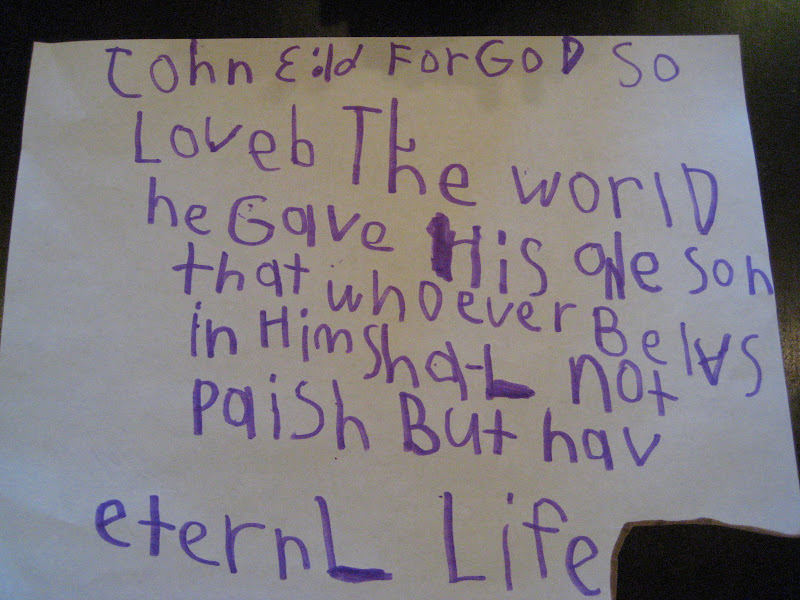 John 3:16 ForGoD So
Loveb The worlD
he Gave His one son
that whoever Belvs
in Him ShaL not
paish But hav
eternL Life